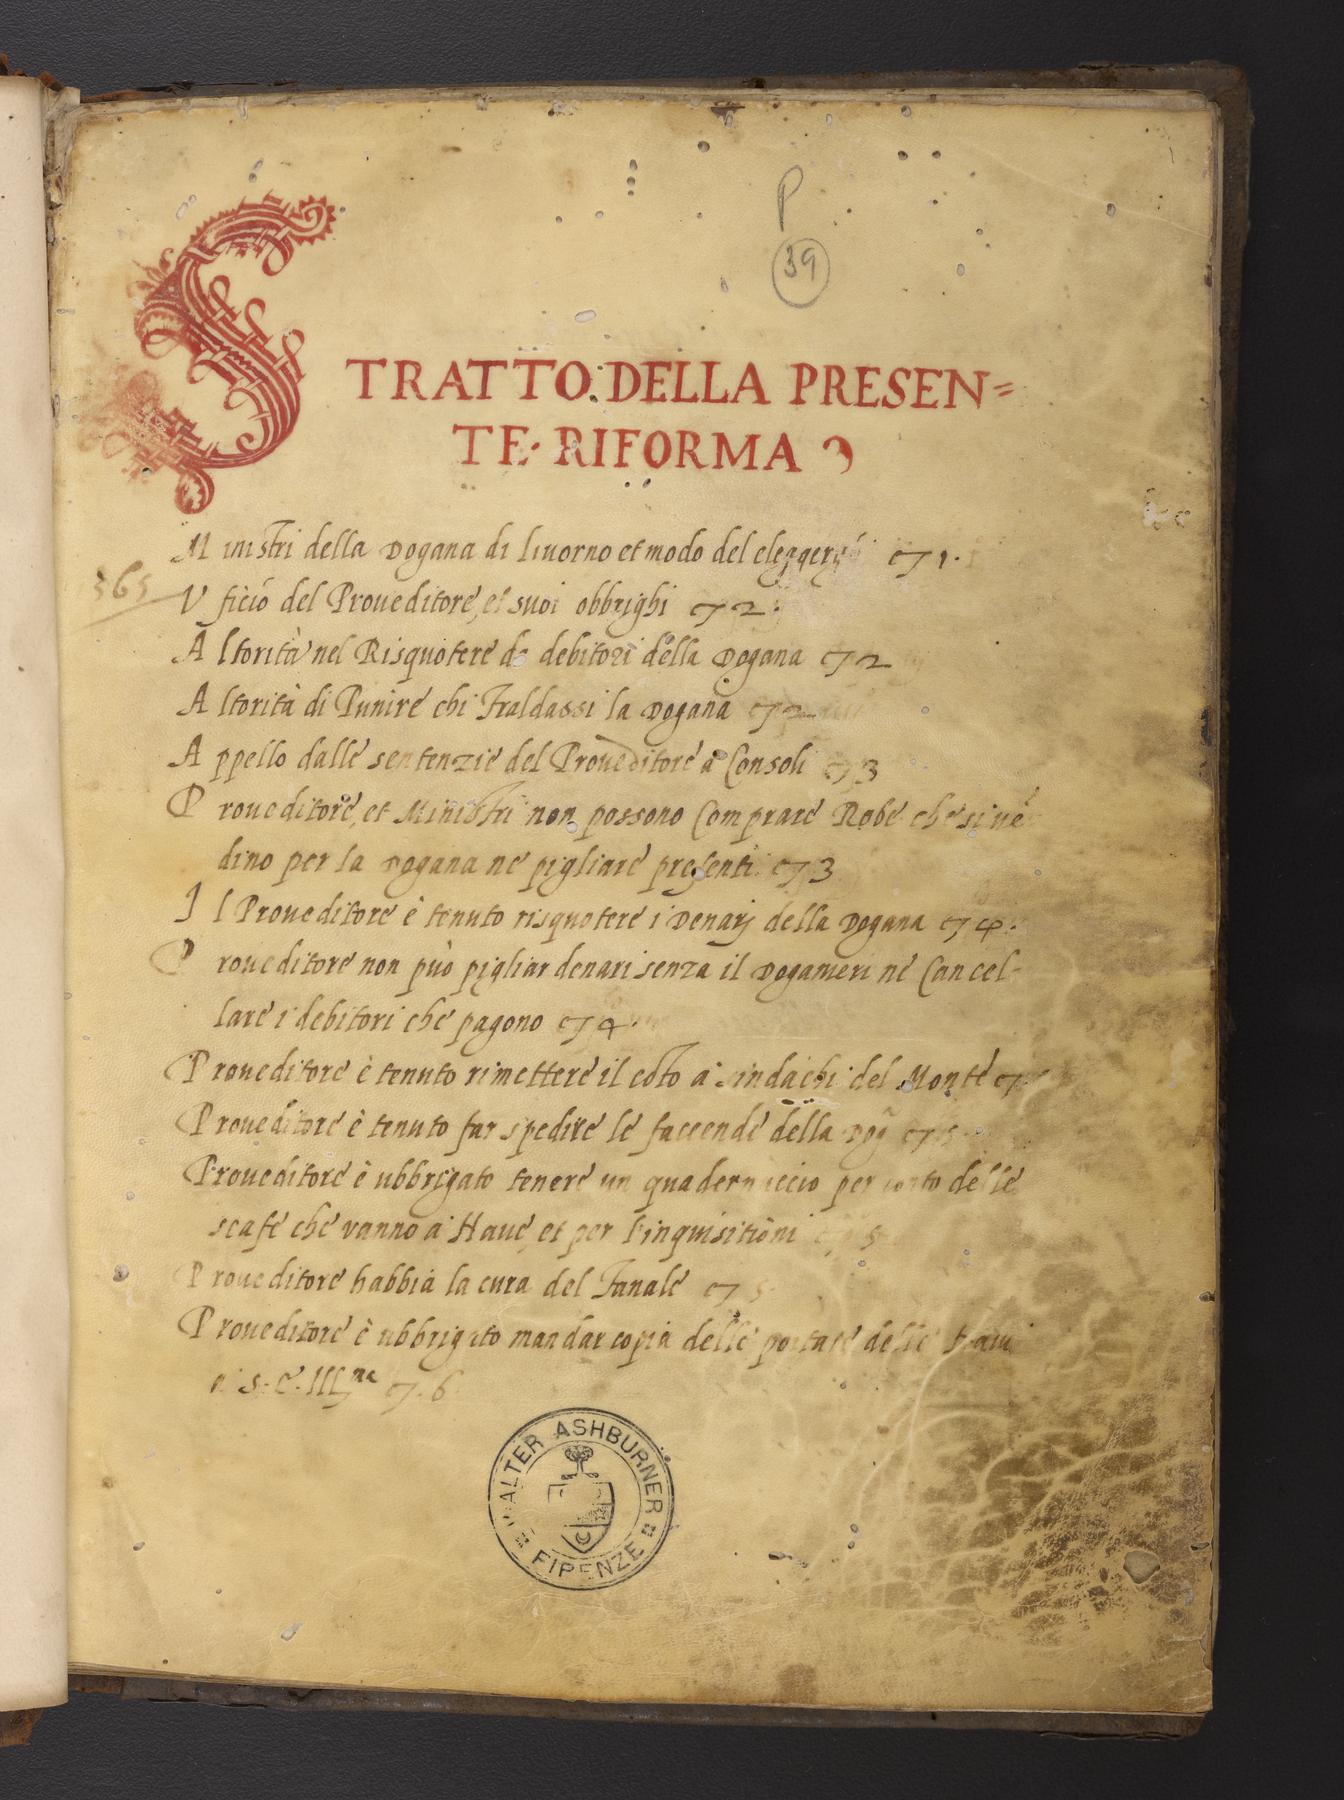 P
39
STRATTO. DELLA PRESEN=
TE. RIFORMA
Ministri della Dogana di livorno et modo del eleggergli c7 1.
365
Vficio del Proueditore, et suoi obbrighi c7 2.
Altorità nel Risquotere da debitori della Dogana c7 2
Altorità di Punire chi fraldassi la Dogana c7 2
Appello dalle sentenzie del Proueditore a Consoli c7 3
Proueditore, et Ministri non possono Comprare Robe che si vē
dino per la Dogana ne pigliare presenti c7 3
Il Proueditore è tenuto risquotere i Denarj della Dogana c7 4.
Proueditore non può pigliar denari senza il Doganieri ne Cancel-
lare i debitori che pagono c7 4.
Proueditore è tenuto rimettere il coto a sindachi del Monte c7
Proueditore è tenuto far spedire le faccende della Dogā c7 5
Proueditore è ubbrigato tenere un quadernuccio per conto delle
scafe che vanno a Naue, et per l'inquisitioni c7 5
Proueditore habbia la cura del Fanale c7 5
Proueditore è ubbrigato mandar copia delle portate delle Naui
a S. E. Illma c7. 6
WALTER ASHBURNER
FIRENZE